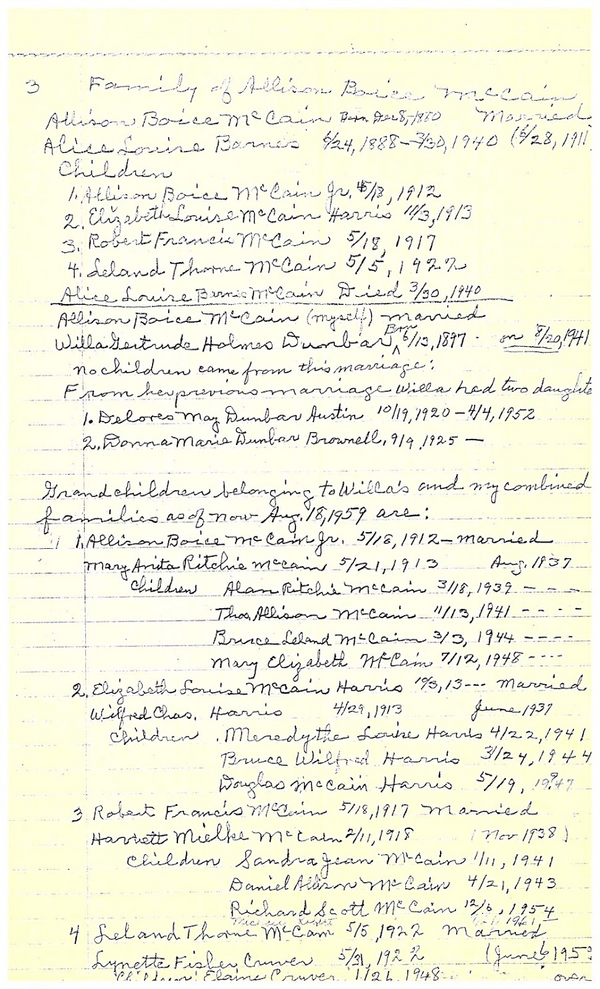 3 Family of Allison Boice McCain
Allison Boice McCain Born Dec 8, 1880 Married
Alice Louise Barnes 6/24, 1888-3/30, 1940 (6/28, 1911
Children
1. Allison Boice McCain Jr. 5/18, 1912
2. Elizabeth Louise McCain Harris 11/3, 1913
3. Robert Francis McCain 5/18, 1917
4. Leland Thorne McCain 5/5, 1922
Alice Louise Barnes McCain Died 3/30, 1940
Allison Boice McCain (myself) married
Willa Gertrude Holmes Dunbar, Born 6/13, 1897 - on 8/20, 1941
no children came from this marriage:
From her previous marriage Willa had two daughte
1. Delores May Dunbar Austin 10/19, 1920 - 4/4, 1952
2. Donna Marie Dunbar Brownell, 9/9, 1925 -
Grandchildren belonging to Willa's and my combined
families as of now Aug. 18, 1959 are:
1. Allison Boice McCain Jr. 5/18, 1912 - married
Mary Anita Ritchie McCain 5/21, 1913 Aug. 1937
Children Alan Ritchie McCain 3/18, 1939 - - -
Thos. Allison McCain 11/13, 1941 - - - -
Bruce Leland McCain 3/3, 1944 - - - -
Mary Elizabeth McCain 7/12, 1948 - - - -
2. Elizabeth Louise McCain Harris 13 - - - Married
Wilfred Chas. Harris 4/29, 1913 June 1937
Children . Meredythe Louise Harris 4/22, 1941
Bruce Wilfred Harris 3/24, 1944
Douglas McCain Harris 5/19, 1947
3 Robert Francis McCain 5/18, 1917 Married
Harriett Mielke McCain 2/11, 1918 (Nov 1938)
Children Sandra Jean McCain 1/11, 1941
Daniel Allison McCain 4/21, 1943
Richard Scott McCain 12/6, 1954
4 Leland Thorne McCain 5/5, 1922 Married
Lynette Fisher Cruver 5/31, 1922 (June 195
Children Elaine Cruver 1/26, 1948 over